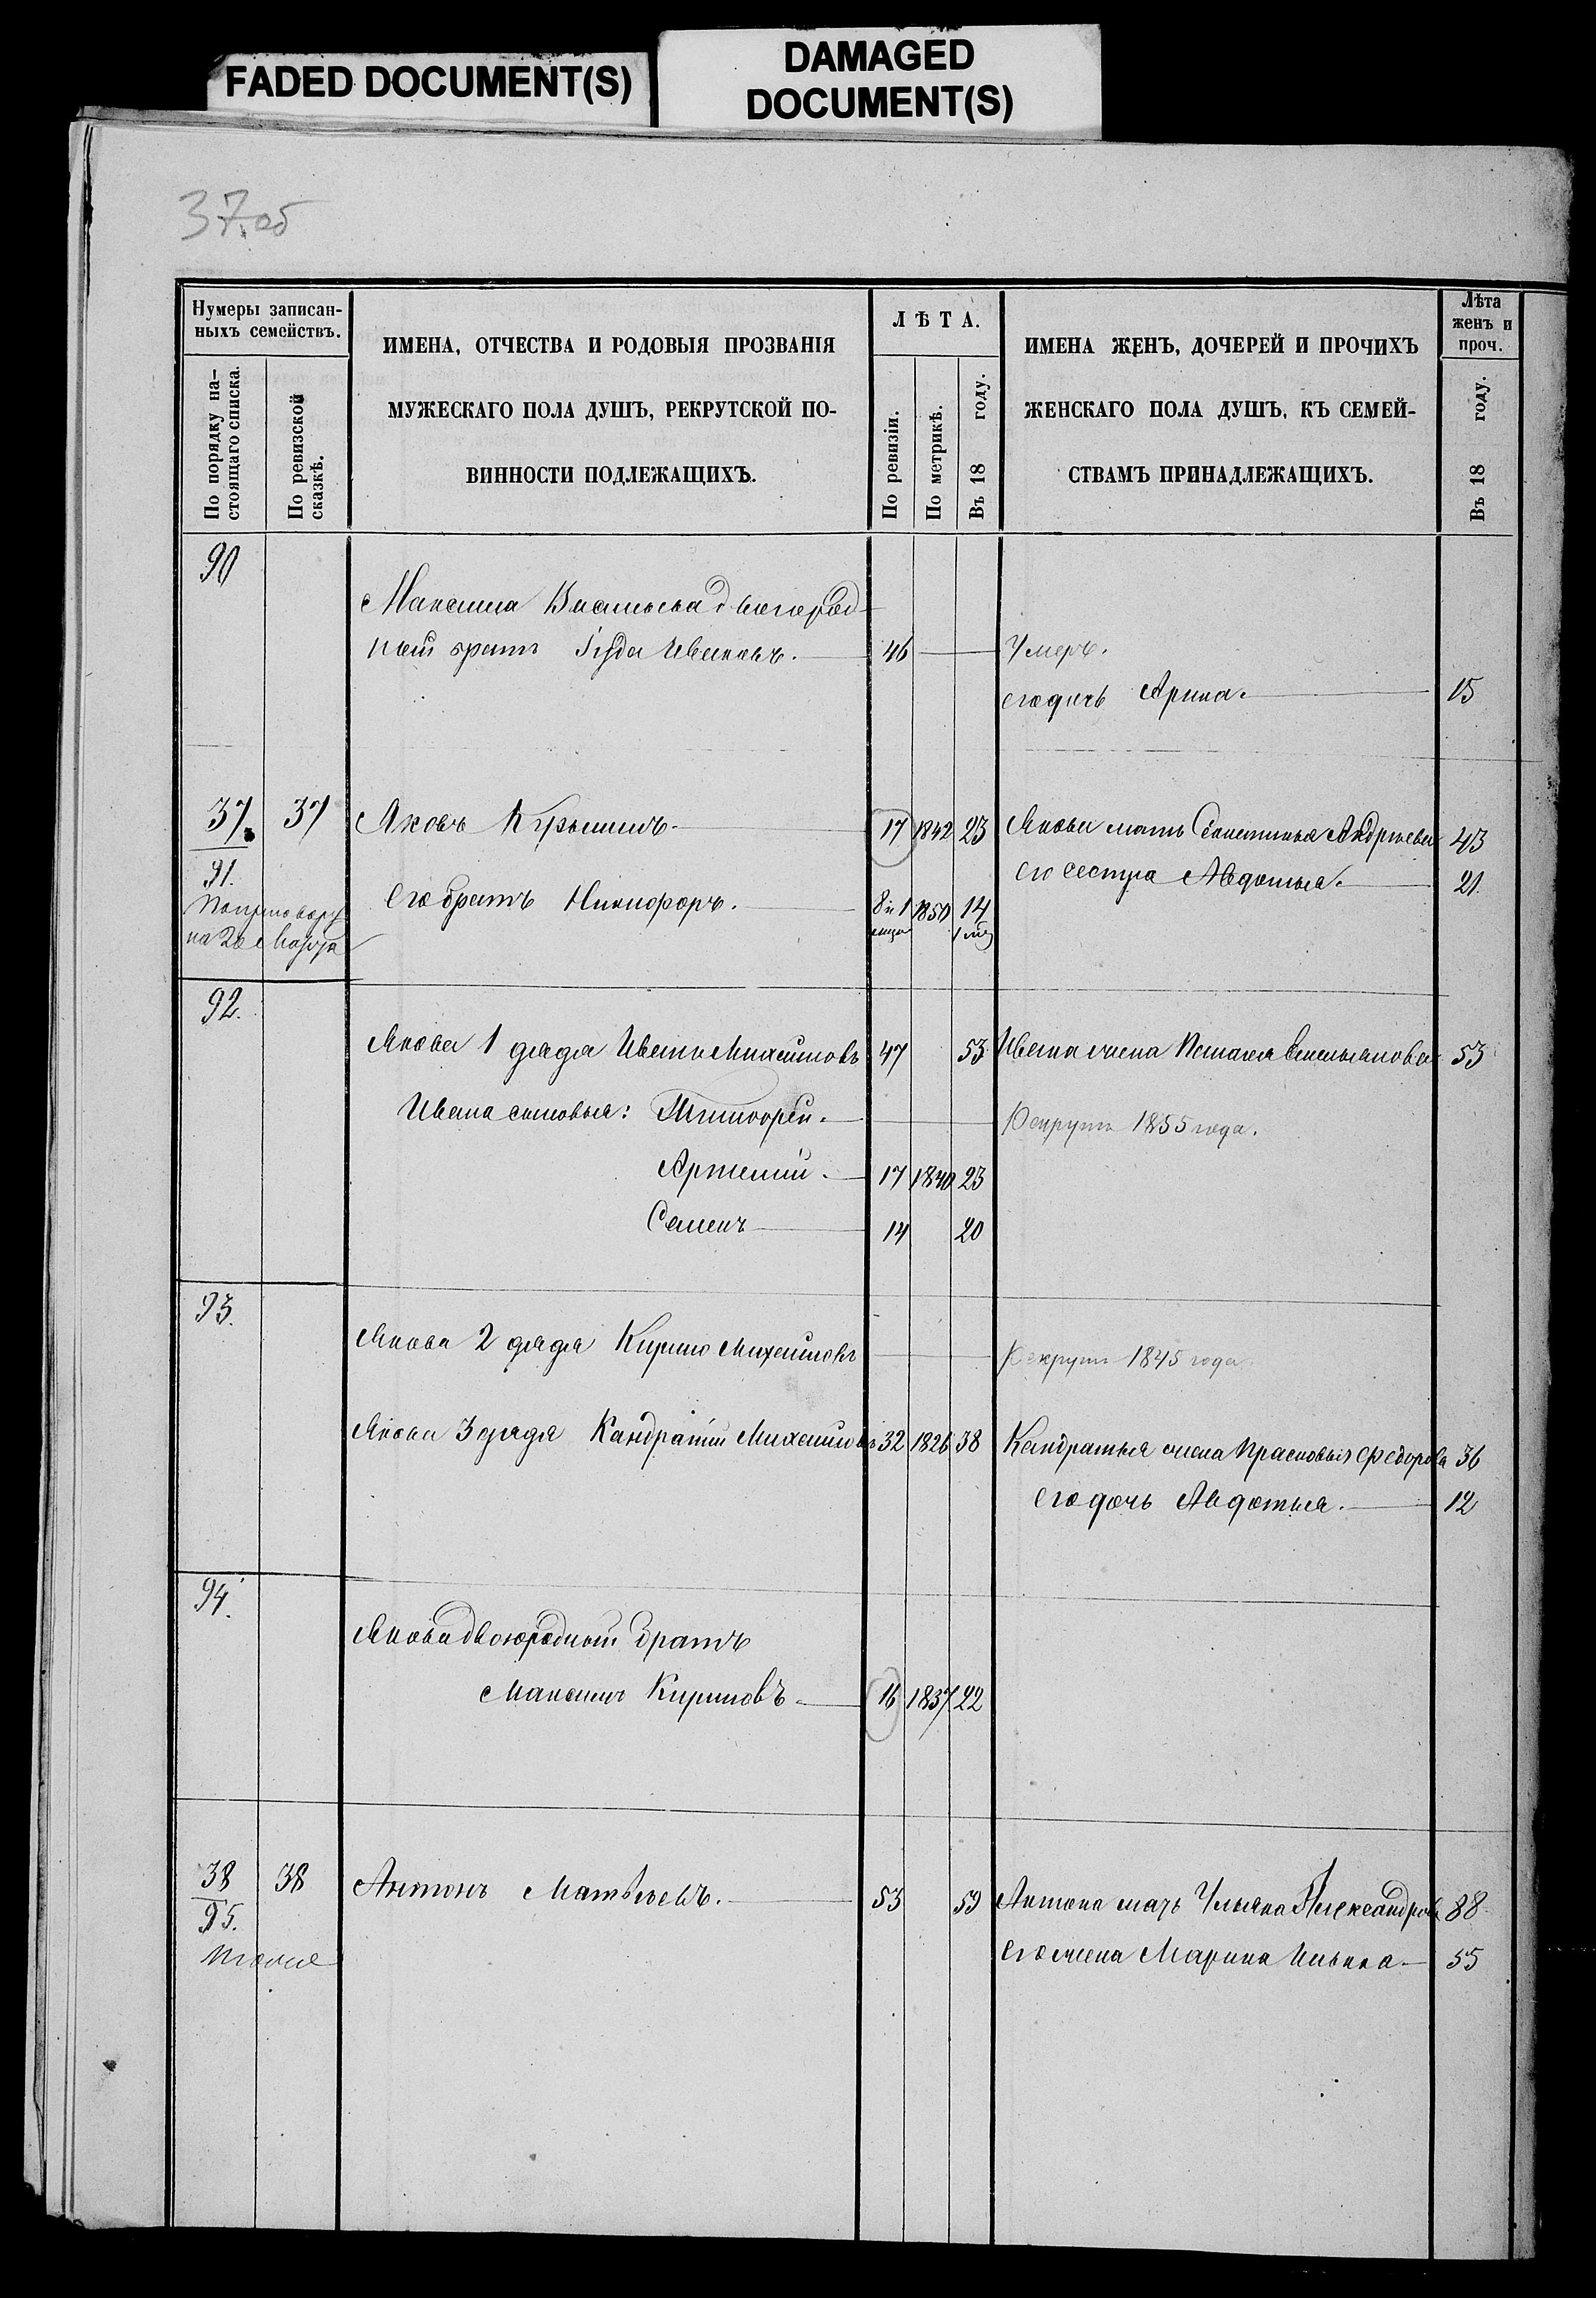 FADED DOCUMENT(S)
DAMAGED
DOCUMENT(S)
37.об
Нумеры записан-
ныхъ семействъ.
По порядку на-
стоящаго списка.
По ревизской
сказкѣ.
ИМЕНА, ОТЧЕСТВА И РОДОВЫЯ ПРОЗВАНІЯ
МУЖЕСКАГО ПОЛА ДУШЪ, РЕКРУТСКОЙ ПО-
ВИННОСТИ ПОДЛЕЖАЩИХЪ.
ЛѢТА.
По ревизіи.
По метрикѣ.
Въ 18 году.
ИМЕНА ЖЕНЪ, ДОЧЕРЕЙ И ПРОЧИХЪ
ЖЕНСКАГО ПОЛА ДУШЪ, КЪ СЕМЕЙ-
СТВАМЪ ПРИНАДЛЕЖАЩИХЪ.
Лѣта
женъ и
проч.
Въ 18 году.
90
Максима Васильева двоюрод-
ный братъ Іуда Ивановъ. 46 Умеръ.
его дочь Арина. 15
37. 37 Яковъ 17 1842 23 Якова мать Андреева 43
91. его сестра Авдотья. 21
По приговору Его братъ Никифоръ. 8 и 1 1850 14
на 20 е
92.
Якова 1 дядя Иванъ Михайловъ 47 53 Ивана жена Емельянова 53
Ивана сыновья: Тимофей. Рекрутъ 1855 года.
Артемій. 17 1840 23
Семенъ 14 20
93.
Якова 2 дядя Кирило Михайловъ Рекрутъ 1845 года.
Якова 3 дядя Кандратій Михайловъ 32 1826 38 Кандратья жена Прасковья Федорова 36
его дочь Авдотья. 12
94.
Якова двоюродный братъ
Максимъ Кириловъ 16 1837 22
38 38 Антонъ Матвѣевъ. 53 59 Антона мать Ульяна Александрова 88
95.
Тоже его жена Марина Ильина 55